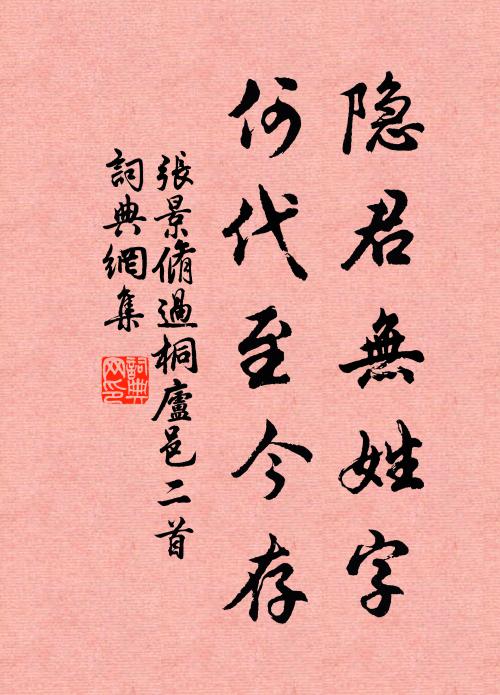 隐君無姓字
何代至今存
張景脩過桐廬邑二首
詞典網集
詞典网印